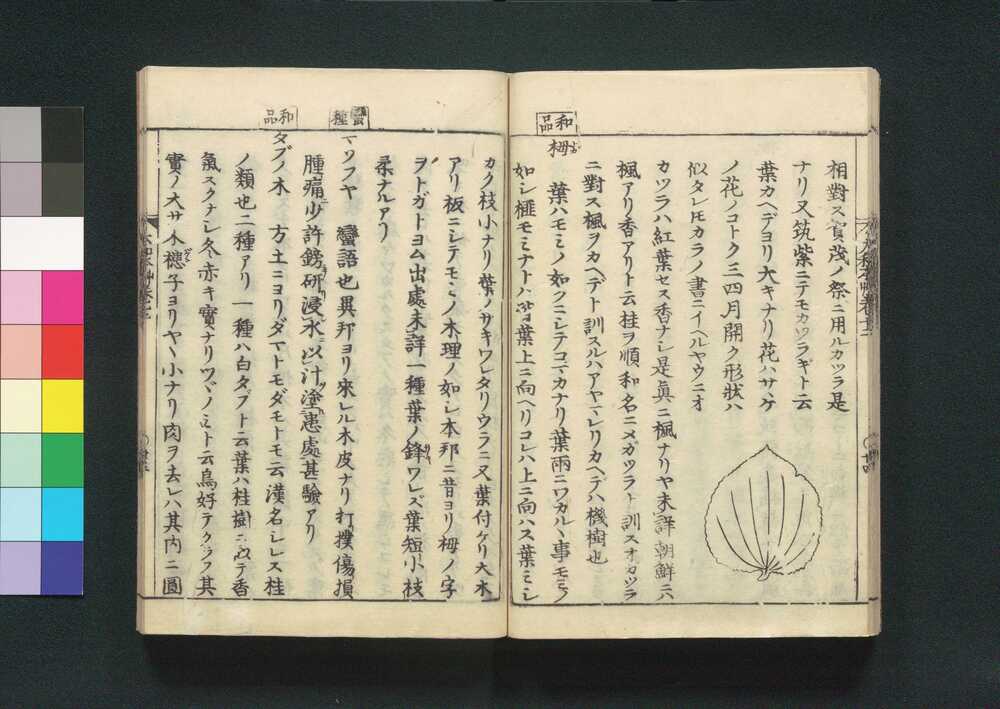 相對ス賀茂ノ祭ニ用ルカツラ是
ナリ又筑紫ニテモカツラギト云
葉カヘデヨリ大キナリ花ハサゝケ
ノ花ノコトク三四月開ク形狀ハ
似タレ𪜈カラノ書ニイヘルヤウニオ
カツラハ紅葉セス香ナシ是眞ニ楓ナリヤ未詳朝鮮ニハ
楓アリ香アリト云桂ヲ順和名ニメガツラト訓スオガツラ
ニ對ス楓ヲカヘデト訓スルハアヤマレリカヘデハ機樹也
和品
栂
葉ハモミノ如クニシテコマカナリ葉兩ニワカルヽ事モミノ
如シ榧モミナトハ皆葉上ニ向ヘリコレハ上ニ向ハス葉ミシ
カク枝小ナリ葉ノサキワレタリウラニ又葉付ケリ大木
アリ板ニシテモミノ木理ノ如シ本邦ニ昔ヨリ栂ノ字
ヲトガトヨム出處未詳一種葉ノ鋒ワレズ葉短小枝
柔ナルアリ
蠻種
マツフヤ 蠻語也異邦ヨリ來レル木皮ナリ打撲傷損
腫痛少許鎊研浸水以汁塗患處甚驗アリ
和品
タブノ木 方土ニヨリダマトモダモトモ云漢名シレス桂
ノ類也二種アリ一種ハ白タブト云葉ハ桂樹ニ似テ香
氣スクナシ冬赤キ實ナリツヾノミト云鳥好テクラフ其
實ノ大サ木槵子ヨリヤヽ小ナリ肉ヲ去レハ其内ニ圓